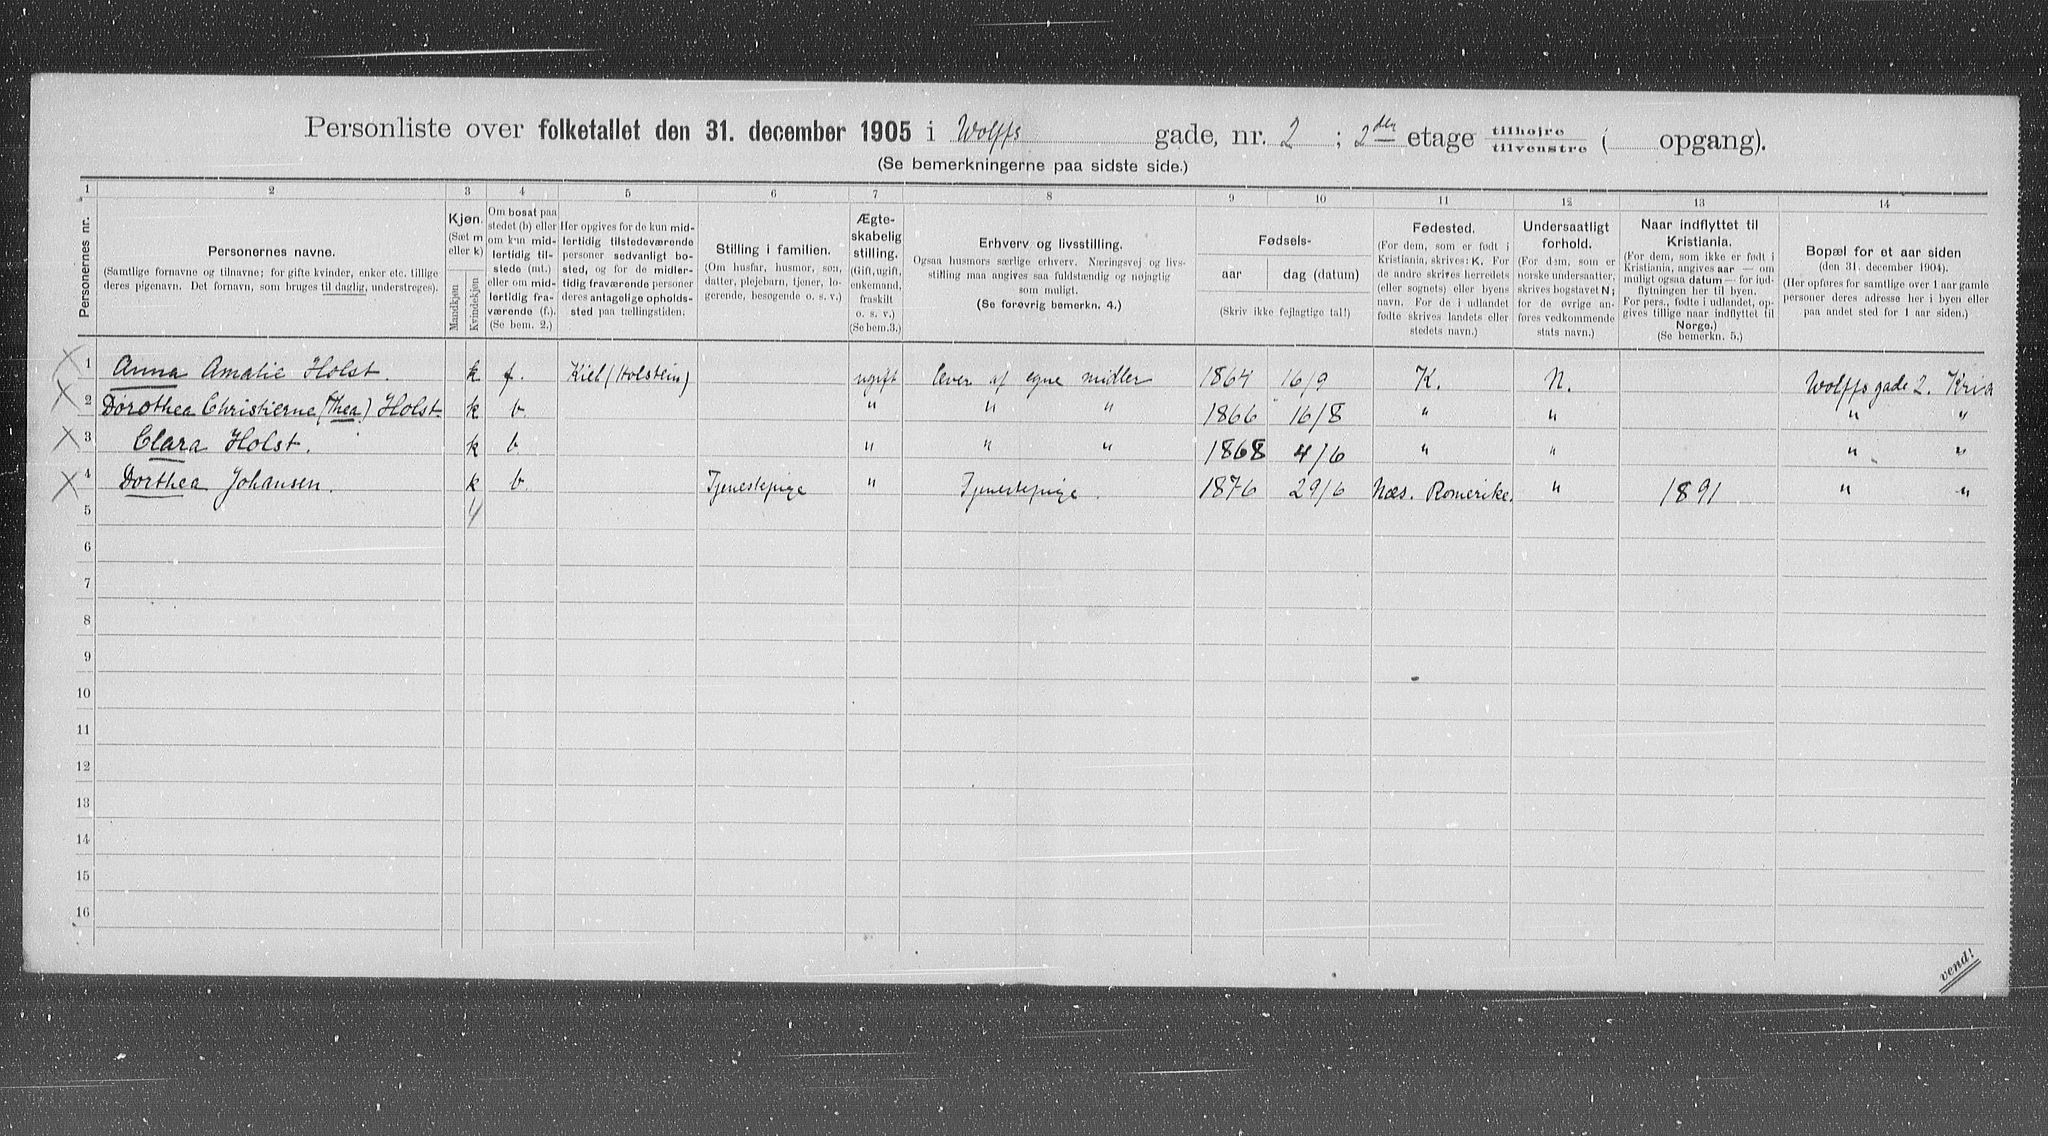 Personliste over folketallet den 31. december 1905 i Wolffs gade, nr. 2 ; 2den etage tilhøjre tilvenstre ( opgang).
(Se bemerkningerne paa sidste side.)
1 2 3 4 5 6 7 8 9 10 11 12 13 14
Personernes nr.
Personernes navne.
(Samtlige fornavne og tilnavne; for gifte kvinder, enker etc. tillige
deres pigenavn. Det fornavn, som bruges til daglig, understreges).
Kjøn.
(Sæt m
eller k)
Mandkjøn
Kvindekjøn
Om bosat paa
stedet (b) eller
om kun mid-
lertidig til-
stede (mt.)
eller om mid-
lertidig fra-
værende (f.).
(Se bem. 2.)
Her opgives for de kun mid-
lertidig tilstedeværende
personer sedvanligt bo-
sted, og for de midler-
tidig fraværende personer
deres antagelige opholds-
sted paa tællingstiden.
Stilling i familien.
(Om husfar, husmor, søn,
datter, plejebarn, tjener, lo-
gerende, besøgende o. s. v.)
Ægte-
skabelig
stilling.
(Gift, ugift,
enkemand,
fraskilt
o. s. v.)
(Se bem.3.)
Erhverv og livsstilling.
Ogsaa husmors særlige erhverv. Næringsvej og livs-
stilling maa angives saa fuldstændig og nøjagtig
som muligt.
(Se forøvrig bemerkn. 4.)
Fødsels-
aar
dag (datum)
(Skriv ikke fejlagtige tal!)
Fødested.
(For dem, som er født i
Kristiania, skrives: K. For
de andre skrives herredets
(eller sognets) eller byens
navn. For de i udlandet
fødte skrives landets eller
stedets navn.)
Undersaatligt
forhold.
(For dem, som er
norske undersaatter,
skrives bogstavet N;
for de øvrige an-
føres vedkommende
stats navn.)
Naar indflyttet til
Kristiania.
(For dem, som ikke er født i
Kristiania, angives aar — om
muligt ogsaa datum — for ind-
flytningen her til byen.
For pers., fødte i udlandet, op-
gives tillige naar indflyttet til
Norge.)
(Se bemerkn. 5.)
Bopæl for et aar siden
(den 31. december 1904).
(Her opføres for samtlige over 1 aar gamle
personer deres adresse her i byen eller
paa andet sted for 1 aar siden.)
1 Anna Amalie Holst. k f. Kiel (Holstein) ugift lever af egne midler 1864 16/9 K. N. Wolffs gade 2. Kria
2 Dorothea Christierne (Thea) Holst k b " " " 1866 16/8 " " " "
3 Clara Holst. k b " " " 1868 4/6 " " " "
4 Dorthea Johansen. k b. Tjenestepige " Tjenestepige. 1876 29/6 Næs. Romerike. " 1891 " "
5 4
6
7
8
9
10
11
12
13
14
15
16
vend!